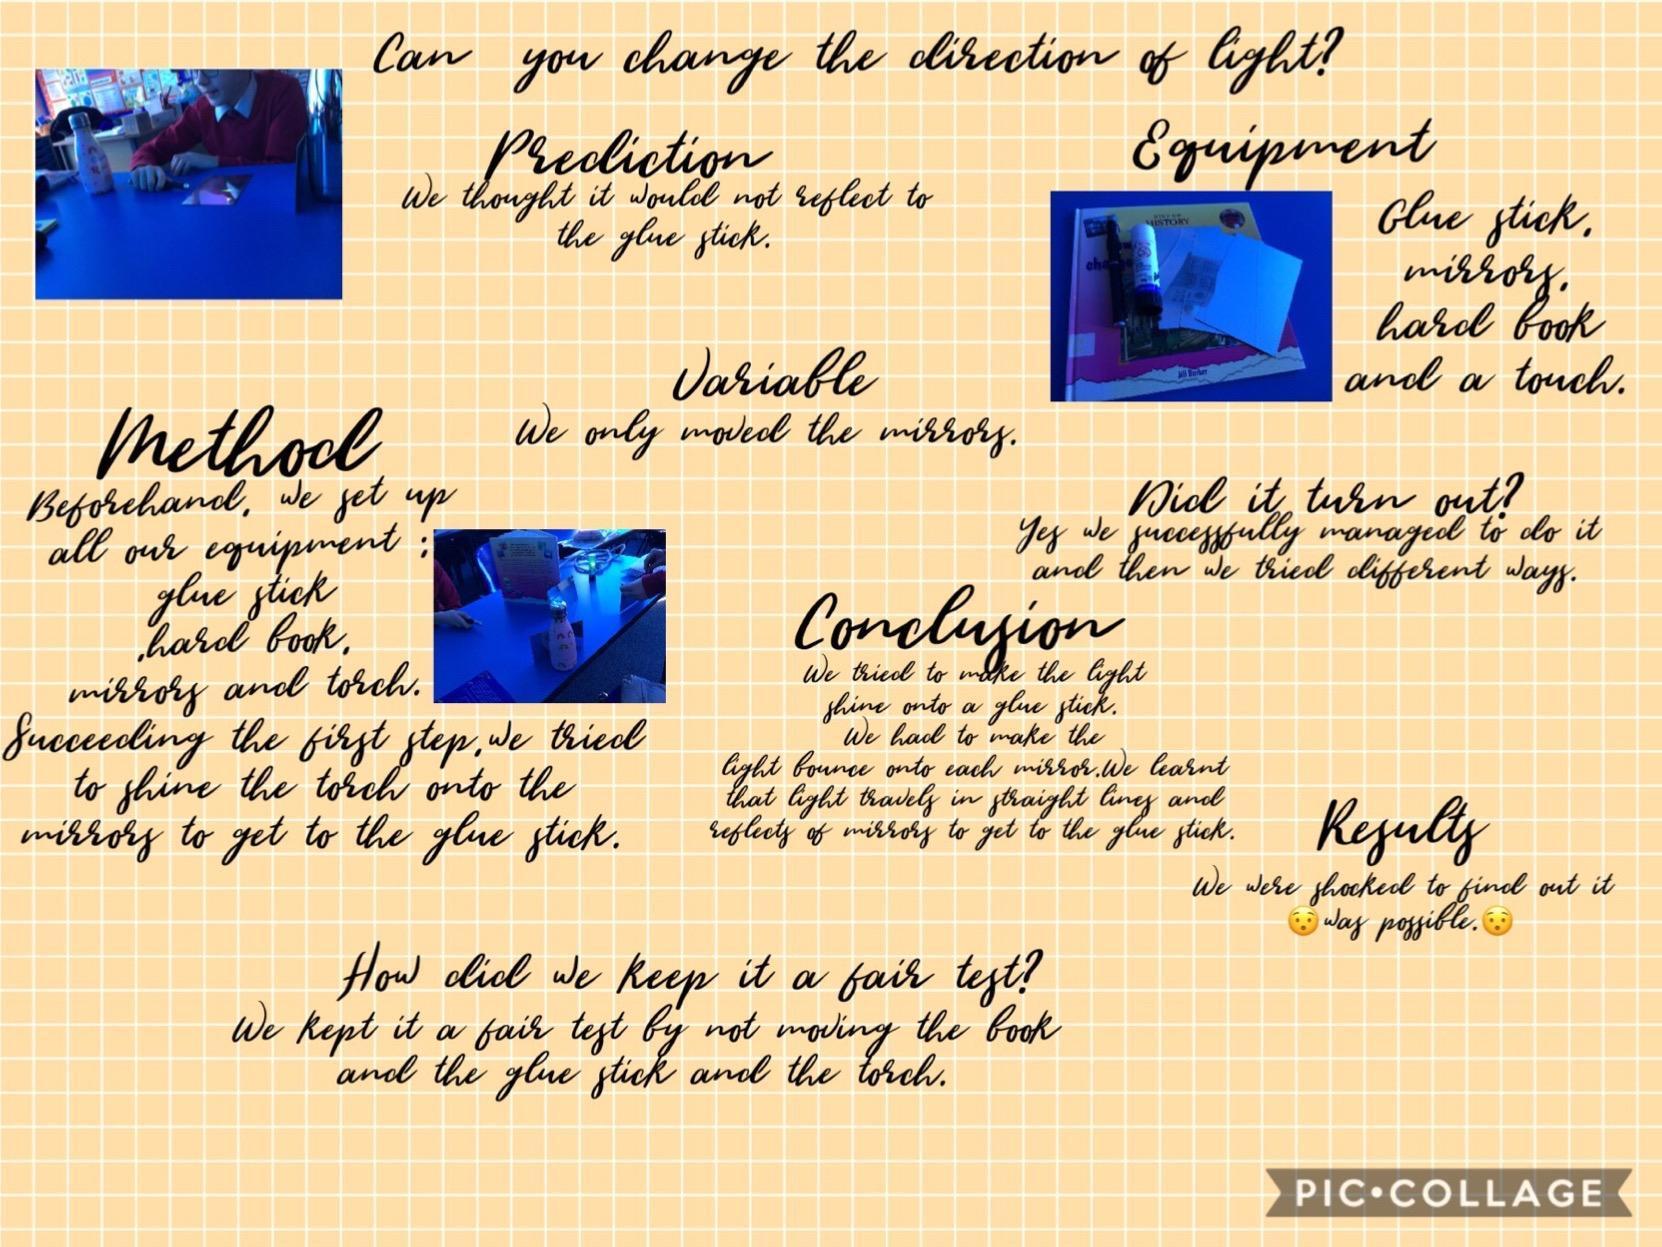 Can you change the direction of light?
Prediction
We thought it would not reflect to
the glue stick.
Equipment
HISTORY
Jill Barber
Glue stick,
mirrors,
hard book
and a touch.
Variable
We only moved the mirrors.
Method
Beforehand, we set up
all our equipment :
glue stick
,hard book,
mirrors and torch.
Succeeding the first step,we tried
to shine the torch onto the
mirrors to get to the glue stick.
Did it turn out?
Yes we successfully managed to do it
and then we tried different ways.
Conclusion
We tried to make the light
shine onto a glue stick.
We had to make the
light bounce onto each mirror.We learnt
that light travels in straight lines and
reflects of mirrors to get to the glue stick.
Results
We were shocked to find out it
😯was possible.😯
How did we keep it a fair test?
We kept it a fair test by not moving the book
and the glue stick and the torch.
PIC•COLLAGE